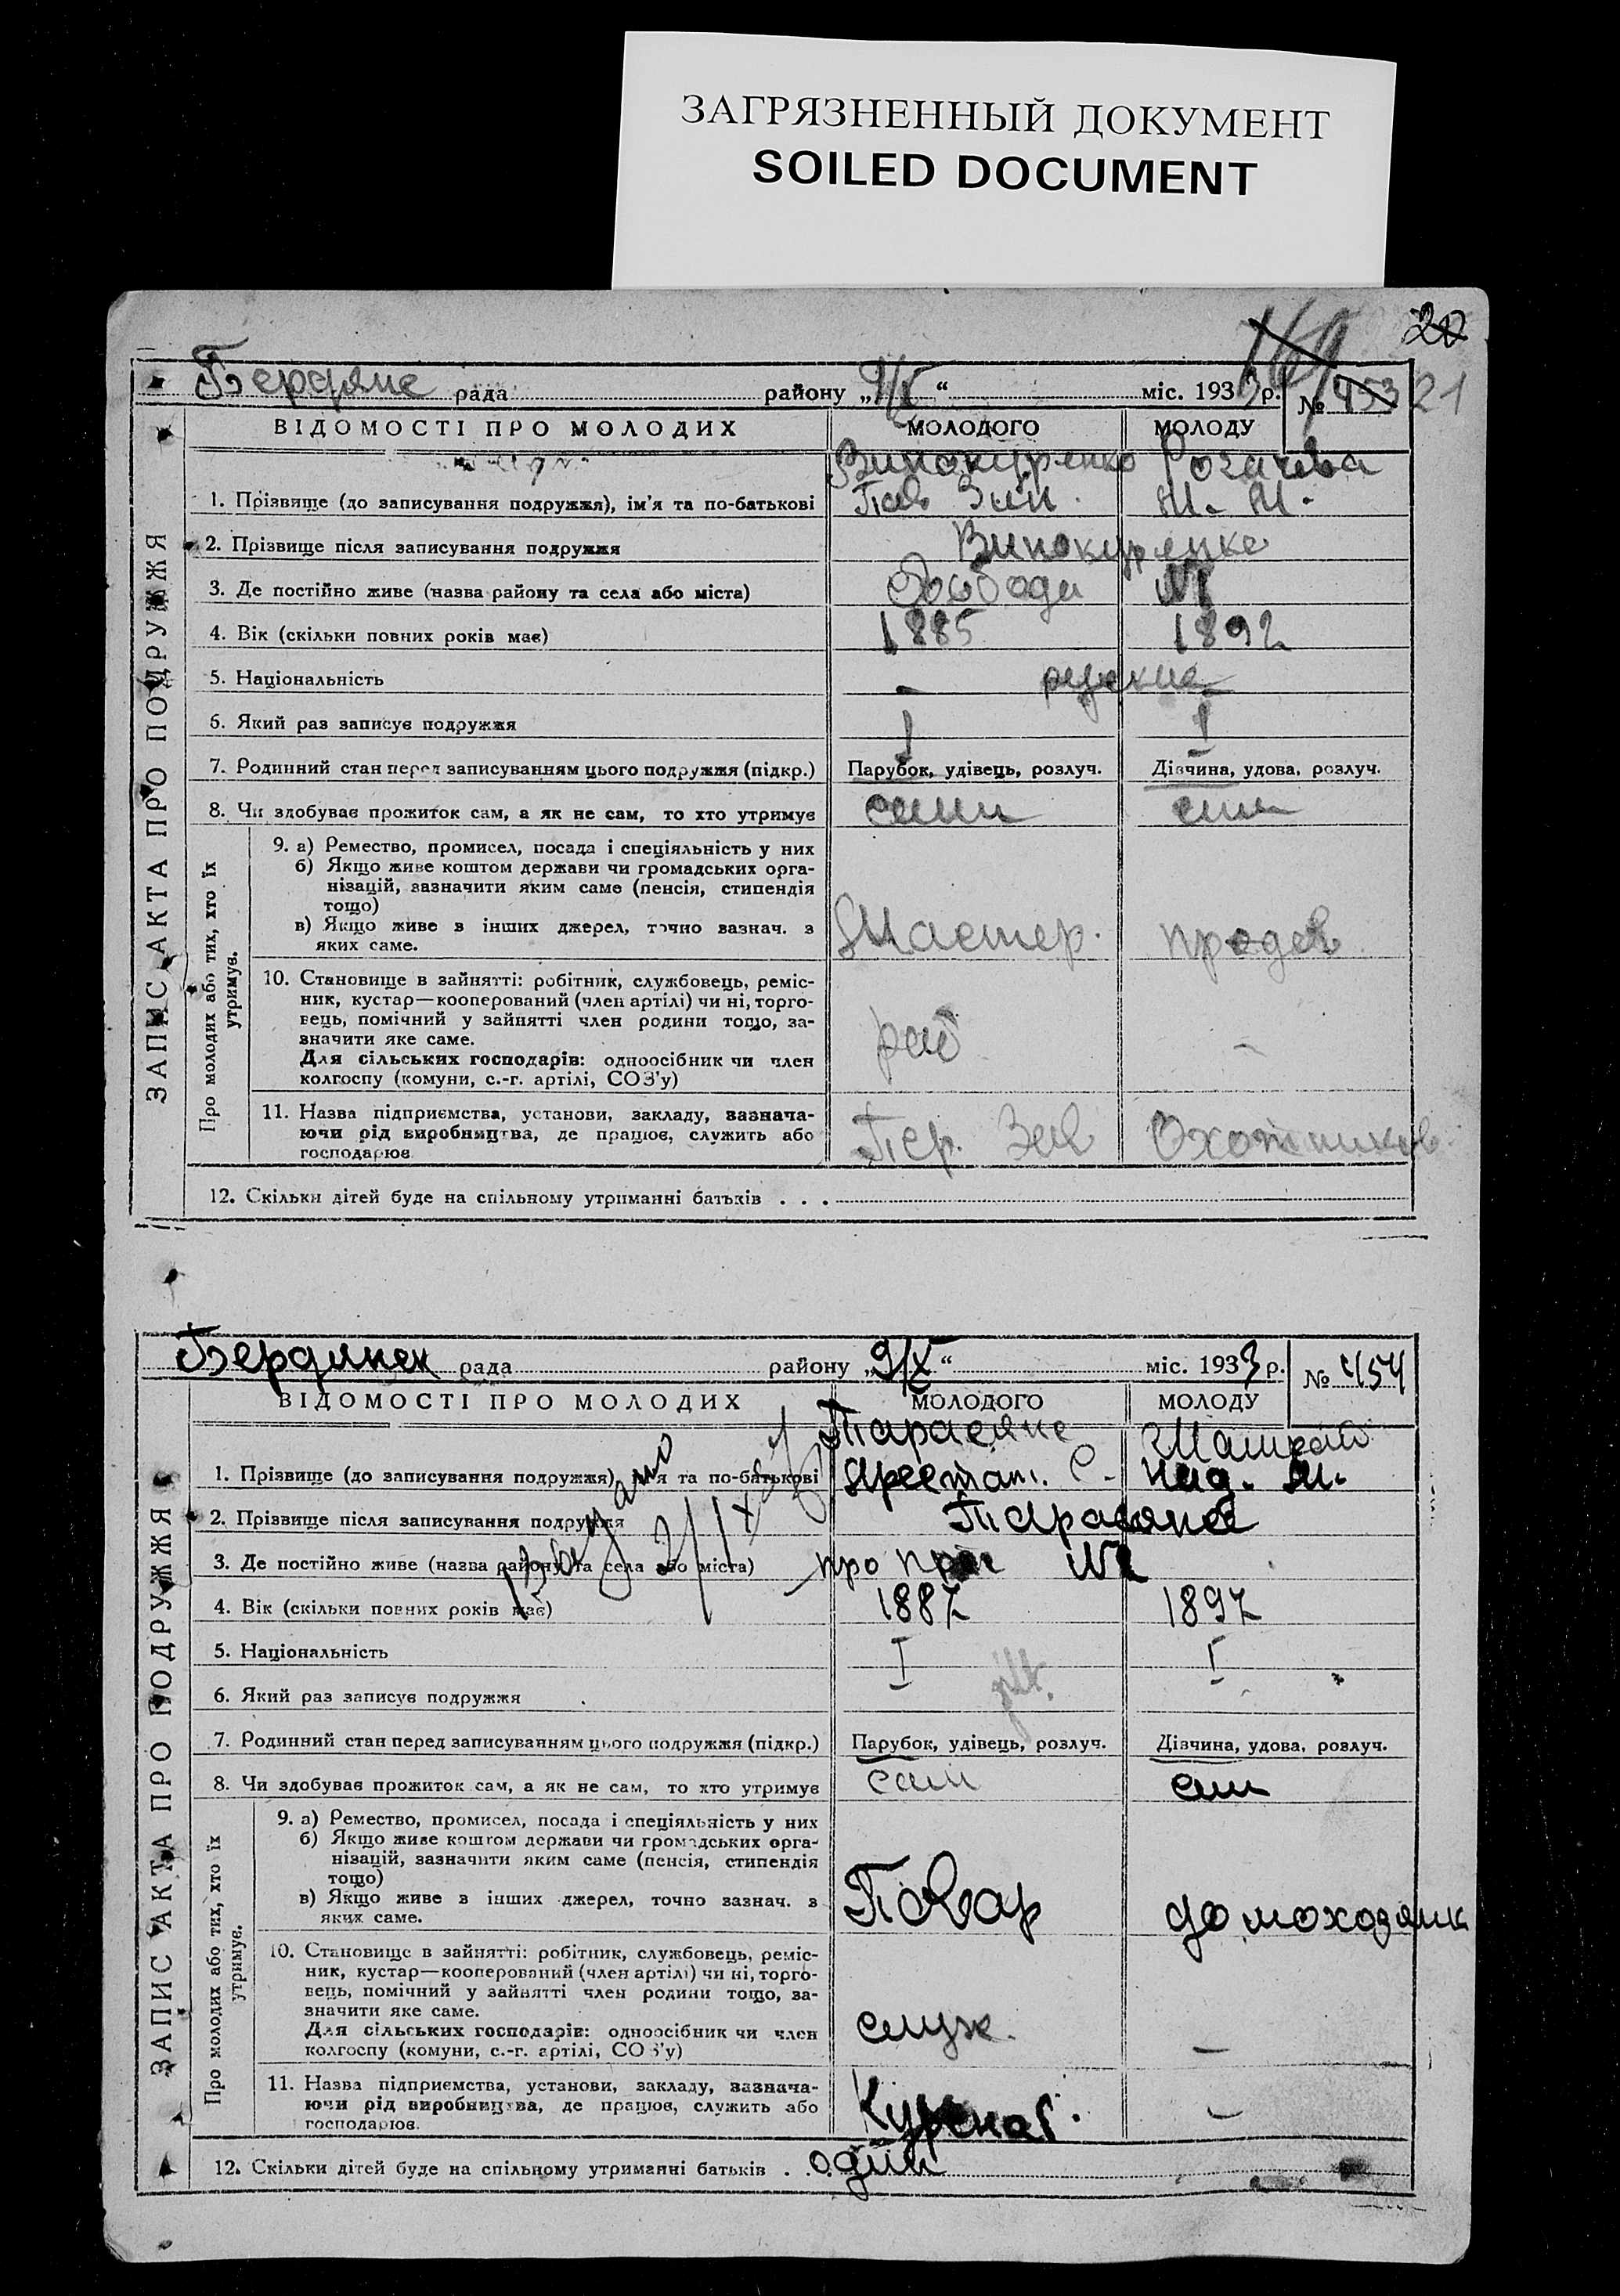 ЗАГРЯЗНЕННЫЙ ДОКУМЕНТ
SOILED DOCUMENT
20
21
Бердянс рада району „9/X“ міс. 1933 р. № 453
ВІДОМОСТІ ПРО МОЛОДИХ МОЛОДОГО МОЛОДУ
Винокуренко Рогачева
1. Прізвище (до записування подружжя), ім'я та по-батькові Пав Зин. М. М.
2. Прізвище після записування подружжя Винокуренко
3. Де постійно живе (назва району та села або міста) Свобода
4. Вік (скільки повних років має) 1885 1892
5. Національність - русские
6. Який раз записує подружжя I I
7. Родинний стан перед записуванням цього подружжя (підкр.) Парубок, удівець, розлуч. Дівчина, удова, розлуч.
8. Чи здобуває прожиток сам, а як не сам, то хто утримує сам сам
ЗАПИС АКТА ПРО ПОДРУЖЖЯ
Про молодих або тих, хто їх утримує.
9. а) Ремество, промисел, посада і спеціяльність у них
б) Якщо живе коштом держави чи громадських орга-
нізацій, зазначити яким саме (пенсія, стипендія
тощо)
в) Якщо живе з інших джерел, точно зазнач. з Мастер. продав
яких саме.
10. Становище в зайнятті: робітник, службовець, реміс-
ник, кустар—кооперований (член артілі) чи ні, торго-
вець, помічний у зайнятті член родини тощо, за-
значити яке саме. раб -
Для сільських господарів: одноосібник чи член
колгоспу (комуни, с.-г. артілі, СОЗ'у)
11. Назва підприємства, установи, закладу, зазнача-
ючи рід виробництва, де працює, служить або Пер. Зав Охотников
господарює
12. Скільки дітей буде на спільному утриманні батьків . . .
Бердянск рада району „9/X“ міс. 1933 р. № 454
ВІДОМОСТІ ПРО МОЛОДИХ МОЛОДОГО МОЛОДУ
Тарасянс
1. Прізвище (до записування подружжя), ім'я та по-батькові С. М.
2. Прізвище після записування подружжя
3. Де постійно живе (назва району та села або міста)
4. Вік (скільки повних років має) 1887 1897
5. Національність I I
6. Який раз записує подружжя
7. Родинний стан перед записуванням цього подружжя (підкр.) Парубок, удівець, розлуч. Дівчина, удова, розлуч.
8. Чи здобуває прожиток сам, а як не сам, то хто утримує сам сам
ЗАПИС АКТА ПРО ПОДРУЖЖЯ
Про молодих або тих, хто їх утримує.
9. а) Ремество, промисел, посада і спеціяльність у них
б) Якщо живе коштом держави чи громадських орга-
нізацій, зазначити яким саме (пенсія, стипендія
тощо)
в) Якщо живе з інших джерел, точно зазнач. з Повар домохозяйк
яких саме.
10. Становище в зайнятті: робітник, службовець, реміс-
ник, кустар—кооперований (член артілі) чи ні, торго-
вець, помічний у зайнятті член родини тощо, за-
значити яке саме.
Для сільських господарів: одноосібник чи член служ. -
колгоспу (комуни, с.-г. артілі, СОЗ'у)
11. Назва підприємства, установи, закладу, зазнача-
ючи рід виробництва, де працює, служить або -
господарює
12. Скільки дітей буде на спільному утриманні батьків . . . один